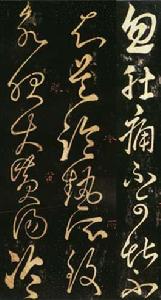 忽肚痛不可堪不
知是冷熱所致
欲服大黃湯冷